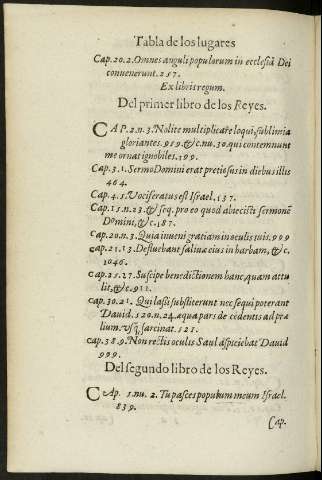 Tabla de los lugares
Cap. 20. 2. Omnes anguli populorum in ecclesiã Dei
conuenerunt. 257.
Ex libris regum.
Del primer libro de los Reyes.
CAP. 2. n. 3. Nolite multiplicare loqui, sublimia
gloriantes. 959. &c. nu. 30. qui contemnunt
me orat ignobiles. 199.
Cap. 3. 1. Sermo Domini erat pretiosus in diebus illis
464.
Cap. 4. 5. Vociferatus est Israel. 137.
Cap. 15. n. 23. & seq. pro eo quod abiecisti sermonẽ
Domini, &c. 187.
Cap. 20. n. 3. Quia inueni gratiam in oculis tuis. 999
cap. 21. 13. Defluebant saliuæ eius in barbam, &c.
1046.
cap. 25. 27. Suscipe benedictionem hanc, quam attu
lit, &c. 911.
cap. 30. 21. Qui lassi substiterunt nec sequi poterant
Dauid. 120. n. 24. æqua pars de cedentis ad præ
lium. vsq; sarcinat. 121.
cap. 38. 9. Non rectis oculis Saul aspiciebat Dauid
999.
Del segundo libro de los Reyes.
CAp. 5. nu. 2. Tu pasces populum meum Israel.
839.
Cap.